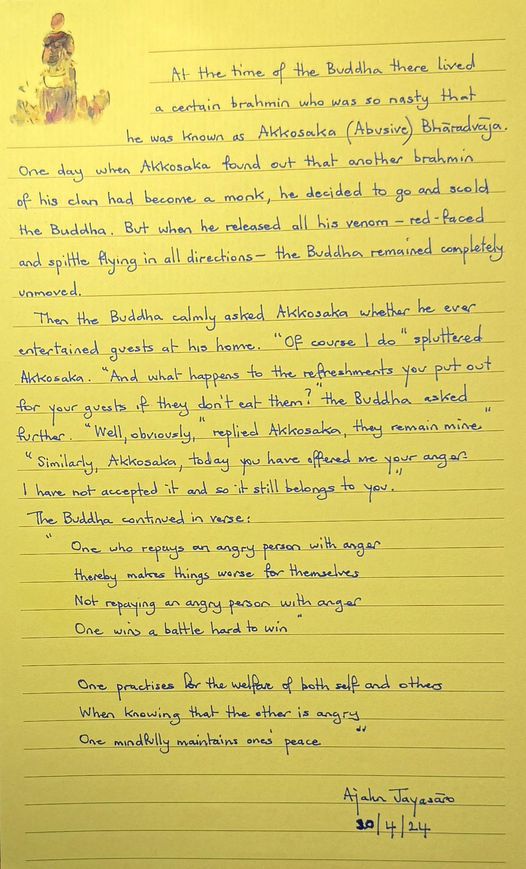 At the time of the Buddha there lived
a certain brahmin who was so nasty that
he was known as Akkosaka (Abusive) Bhāradvāja.
One day when Akkosaka found out that another brahmin
of his clan had become a monk, he decided to go and scold
the Buddha. But when he released all his venom – red-faced
and spittle flying in all directions – the Buddha remained completely
unmoved.
Then the Buddha calmly asked Akkosaka whether he ever
entertained guests at his home. "Of course I do" spluttered
Akkosaka. "And what happens to the refreshments you put out
for your guests if they don't eat them?" the Buddha asked
further. "Well, obviously," replied Akkosaka, they remain mine"
"Similarly, Akkosaka, today you have offered me your anger.
I have not accepted it and so it still belongs to you."
The Buddha continued in verse:
"One who repays an angry person with anger
thereby makes things worse for themselves
Not repaying an angry person with anger
One wins a battle hard to win"
One practises for the welfare of both self and others
When knowing that the other is angry
One mindfully maintains ones' peace"
Ajahn Jayasāro
30/4/24